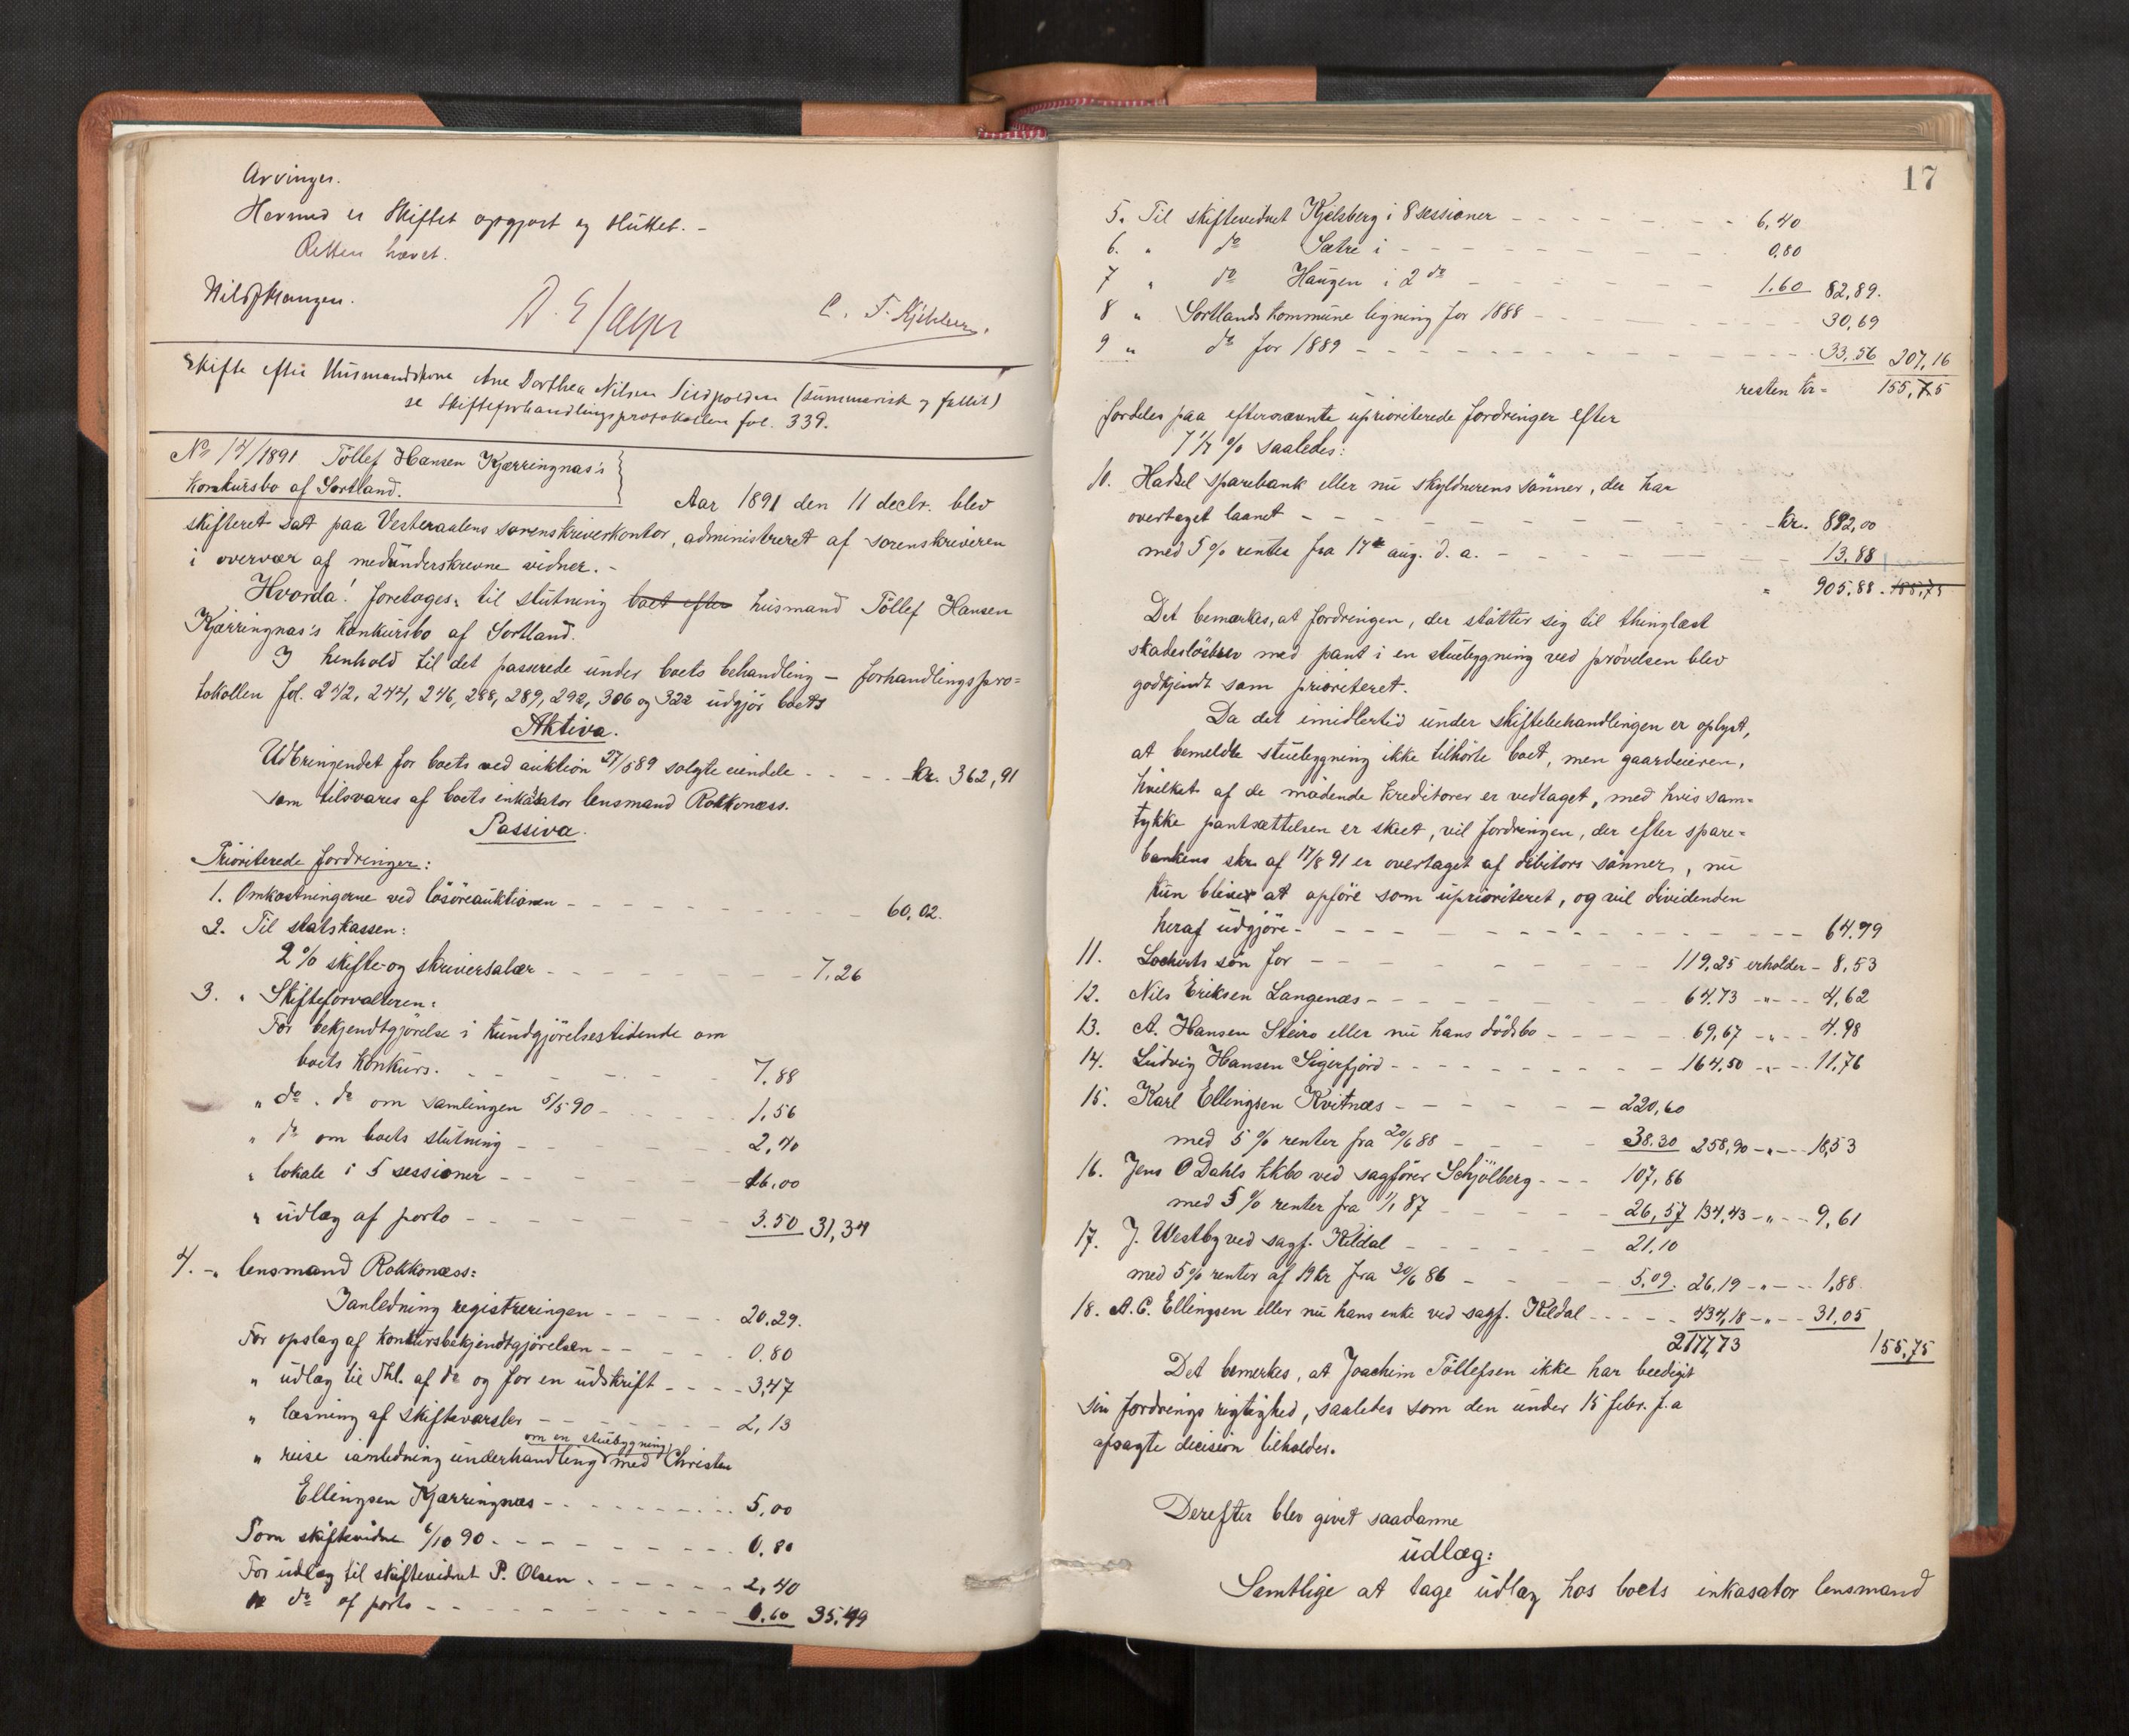 Arvinger.
Hermed er Skiftet opgjort og sluttet. -
Retten hævet.
A. E. C. F. Kjelsberg.
Skifte efter Husmandskone Ane Dorthea Nilsen (summarisk og fallit)
se Skifteforhandlingsprotokollen fol. 339.
No 14/1891 Töllef Hansen Kjærringnæs's
konkursbo af Sortland.
Aar 1891 den 11 decbr. blev
skifteret sat paa Vesteraalens sorenskriverkontor, administreret af sorenskriveren
i overvær af medunderskrevne vidner. -
Hvorda! foretoges: til slutning boet efter husmand Töllef Hansen
Kjærringnæs's konkursbo af Sortland.
I henhold til det passerede under boets behandling - forhandlingspro=
tokollen fol. 242, 244, 246, 288, 289, 292, 306 og 322 udgjör boets
Aktiva.
Udbringendet for boets ved auktion 27/5 89 solgte eiendele - - - - kr. 362,91
som tilsvares af boets inkasator lensmand Rokkonæss.
Passiva.
Prioriterede fordringer:
1. Omkostningerne ved lösöreauktionen - - - 60,02.
2. Til statskassen:
2 % skifte- og skriversalær - - - 7,26
3. " Skifteforvalteren:
For bekjendtgjörelse i kundgjörelsestidende om
boets konkurs. - - - 7,88
" do. do om samlingen 5/5 90 - - - 1,56
" do om boets slutning - - - 2,40
" lokale i 5 sessioner - - - 16,00
" udlæg af porto - - - 3.50 31,34
4. - " lensmand Rokkonæss:
I anledning registreringen - - - 20.29.
For opslag af konkursbekjendtgjörelsen - - - 0.80
" udlæg til Thl. af do og for en udskrift - - - 3,47
" læsning af skiftevarsler - - - 2,13
om en stuebygning
" reise i anledning underhandling med Christen
Ellingsen Kjærringnæs - - - 5,00
Som skiftevidne 6/10 90 - - - 0,80
For udlæg til skiftevidnet P. Olsen - - - 2,40
" do af porto - - - 0.60 35,49
17
5. Til skiftevidnet Kjelsberg i 8 sessioner - - - 6,40
6. " do Sætre i - - - 0,80
7 " do Haugen i 2 do - - - 1.60 82,89.
8 " Sortlands kommune ligning for 1888 - - - 30,69
9 " do for 1889 - - - 33,56 207,16
resten kr = 155,75
fordeles paa efternævnte uprioriterede fordringer efter
7 1/7 % saaledes:
10. Hadsel sparebank eller nu skyldnerens sönner, der har
overtaget laanet - - - kr. 892,00
med 5 % renter fra 17de aug. d. a. - - - 13.88
" 905,88. 155,75
Det bemærkes, at fordringen, der stötter sig til thinglæst
skadeslösbrev med pant i en stuebygning ved prövelsen blev
godkjendt som prioriteret.
Da det imidlertid under skiftebehandlingen er oplyst,
at bemeldte stuebygning ikke tilhörte boet, men gaardeieren,
hvilket af de mödende kreditorer er vedtaget, med hvis sam=
tykke pantsættelsen er skeet, vil fordringen, der efter spare=
bankens skr. af 17/8 91 er overtaget af debitors sönner, nu
kun blive at opföre som uprioriteret, og vil dividenden
heraf udgjöre - - - 64.79
11. Locherts sön for - - - 119,25 erholder - 8,53
12. Nils Eriksen Langenæs - - - 64.73 - " - - 4,62
13. A. Hansen Steiro eller nu hans dödsbo - - - 69,67 - " - 4.98
14. Ludvig Hansen Sigerfjord - - - 164,50 - " - - 11,76
15. Karl Ellingsen Kvitnæs - - - 220,60
med 5 % renter fra 20/6 88 - - - 38.30 258,90 - " - - 18,53
16. Jens O Dahls kkbo ved sagförer Schjölberg - - - 107,86
med 5 % renter fra 1/1 87 - - - 26,57 134,43 - " - - 9,61
17. J. Westby ved sagf. Kildal - - - 21.10
med 5 % renter af 19 kr fra 20/6 86 - - - 5,09. 26,19 - " - - 1,88
18. A. C. Ellingsen eller nu hans enke ved sagf. Kildal - - - 434,18 - " - - 31,05
2177,73 155,75
Det bemerkes, at Joachim Töllefsen ikke har beediget
sin fordrings rigtighed, saaledes som den under 15 febr. f. a
afsagte decision tilholder.
Derefter blev givet saadanne
udlæg:
Samtlige at tage udlæg hos boets inkasator lensmand